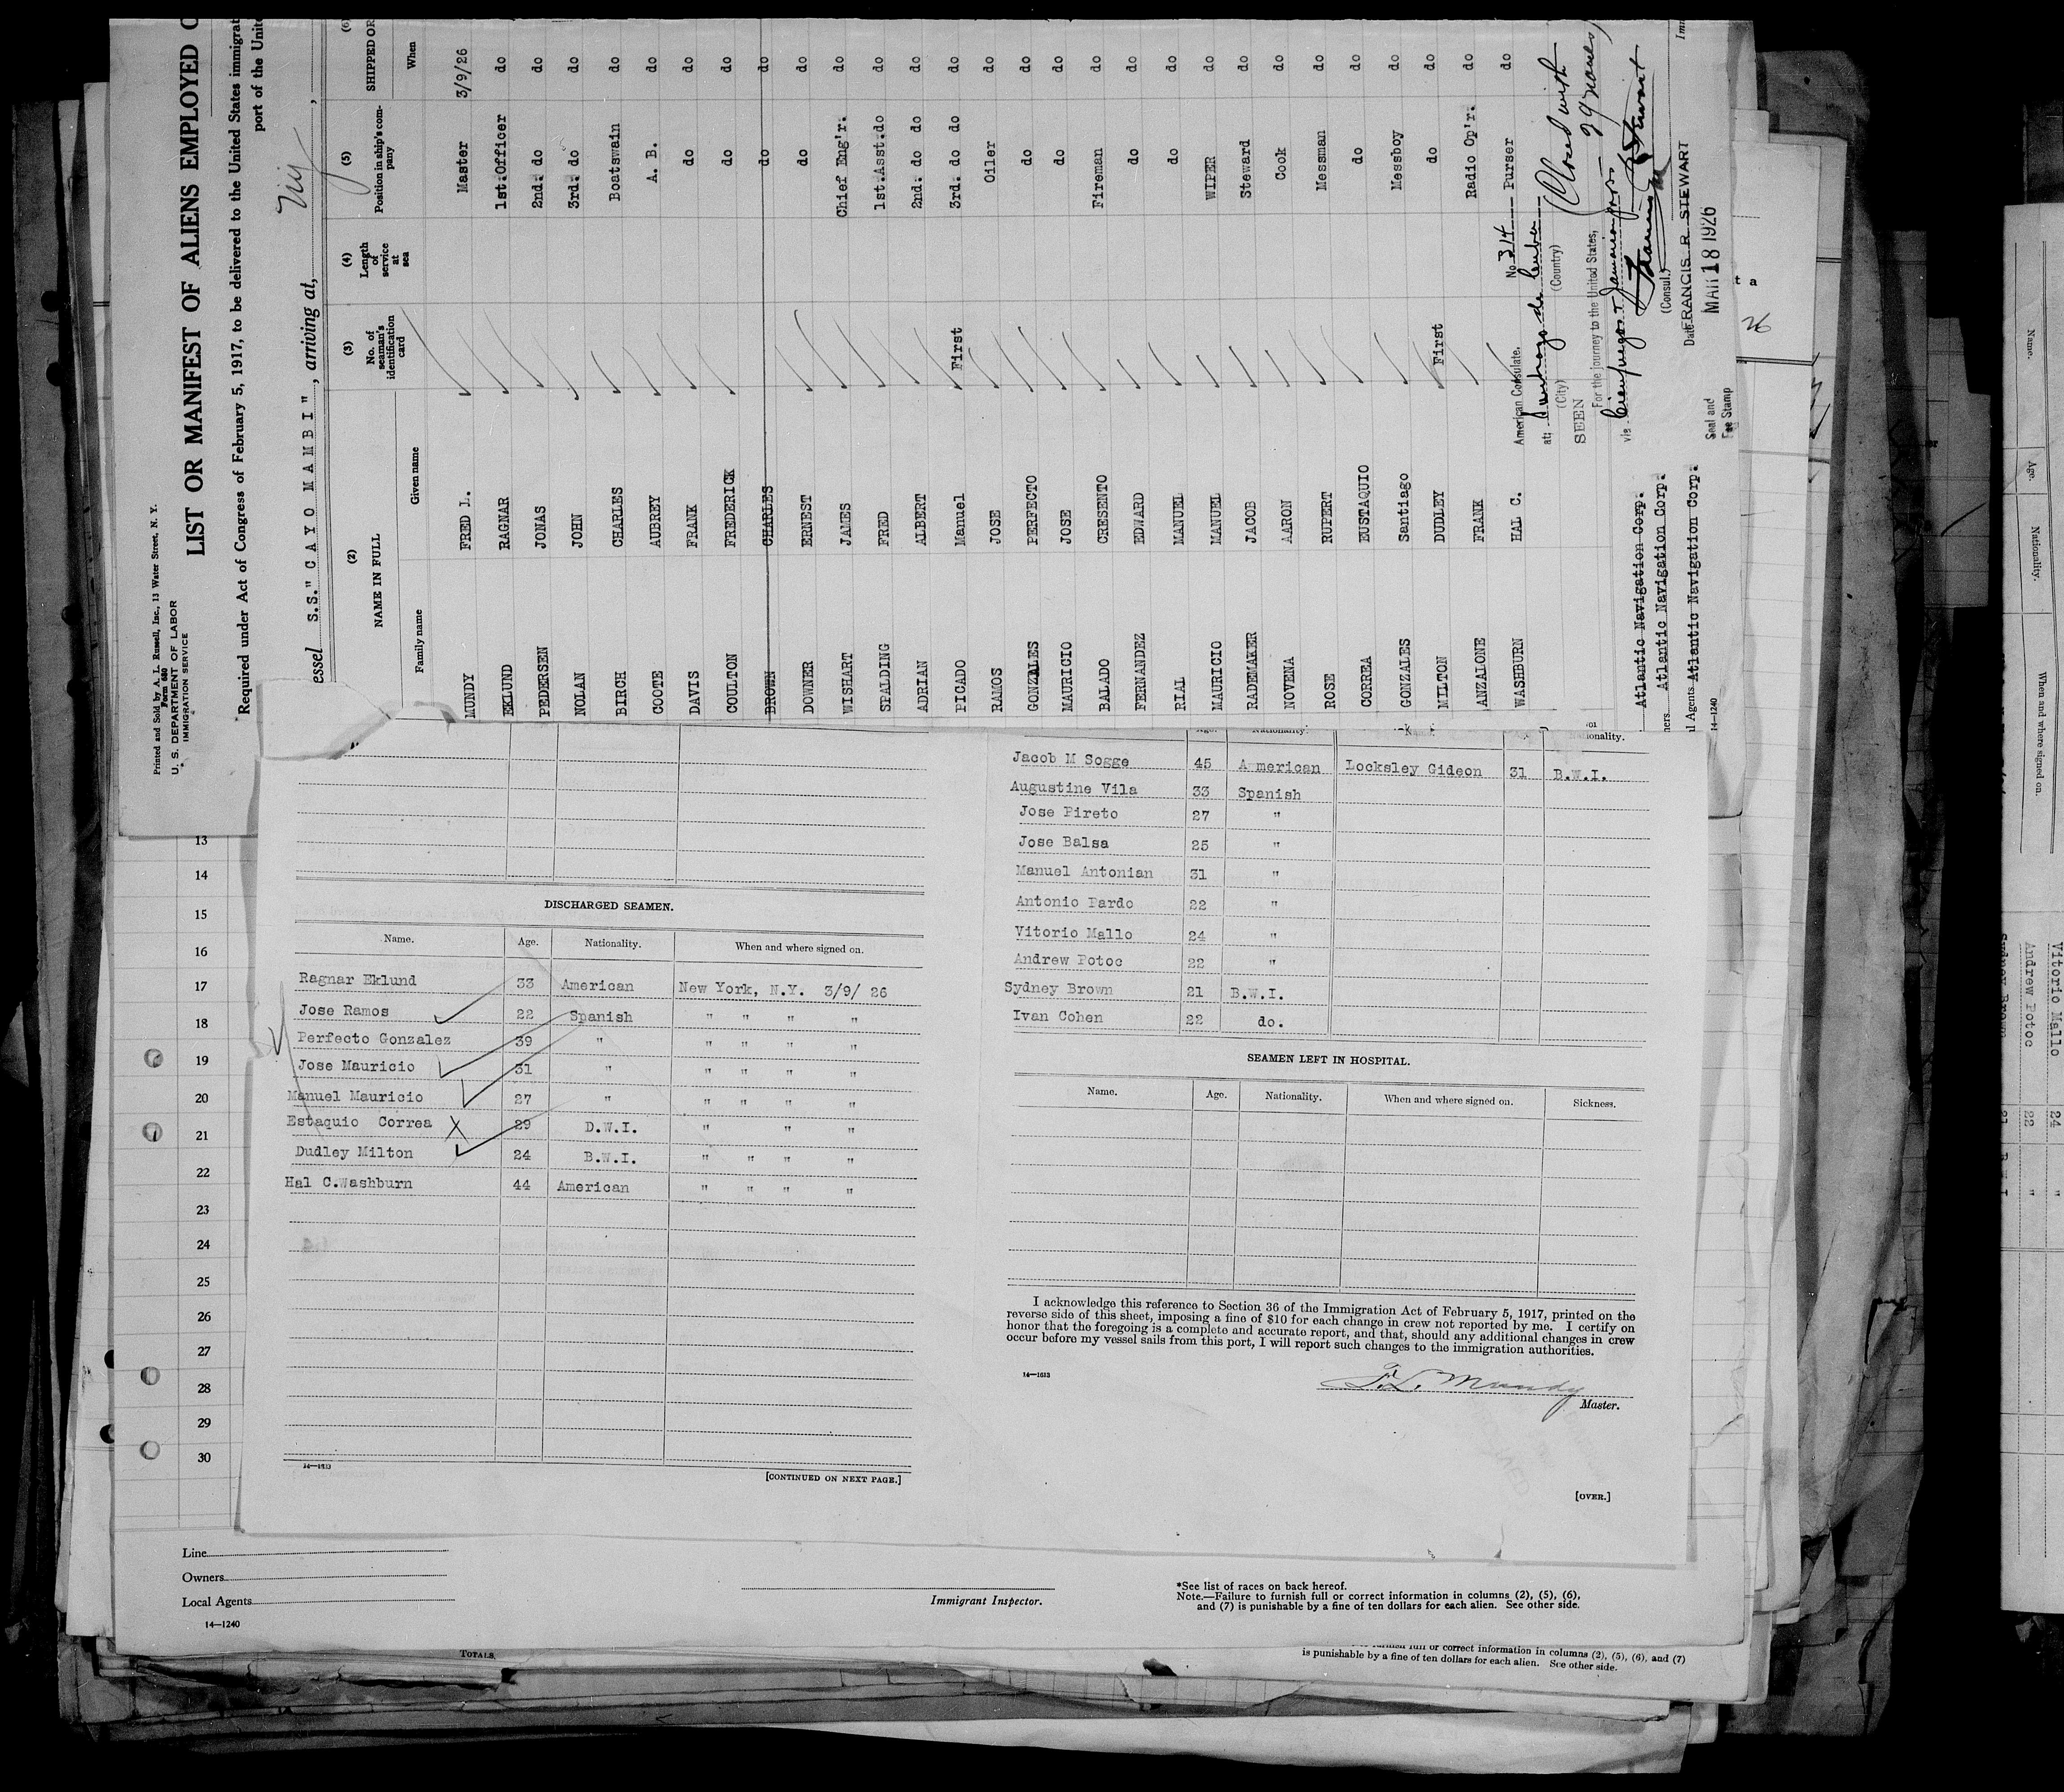 Printed and Sold by A. L. Russell, Inc., 13 Water Street, N. Y.
Form 680
U. S. DEPARTMENT OF LABOR
IMMIGRATION SERVICE
LIST OR MANIFEST OF ALIENS EMPLOYED O
Required under Act of Congress of February 5, 1917, to be delivered to the United States immigrat
port of the Unite
essel S.S." C A Y O M A M B I ", arriving at,
(2) (3) (4) (5) (6)
NAME IN FULL No. of seaman's identification card Length of service at sea Position in ship's company SHIPPED OR
Family name Given name When
MUNDY FRED L. Master 3/9/26
EKLUND RAGNAR 1st.Officer do
PEDERSEN JONAS 2nd. do do
NOLAN JOHN 3rd. do do
BIRCH CHARLES Boatswain do
COOTE AUBREY A. B. do
DAVIS FRANK do do
COULTON FREDERICK do do
BROWN CHARLES do do
DOWNER ERNEST do do
WISHART JAMES Chief Eng'r. do
SPALDING FRED 1st.Asst.do do
ADRIAN ALBERT 2nd. do do do
PICADO Manuel First 3rd. do do do
RAMOS JOSE Oiler do
GONZALES PERFECTO do do
MAURICIO JOSE do do
BALADO CRESENTO Fireman do
FERNANDEZ EDWARD do do
RIAL MANUEL do do
MAURICIO MANUEL WIPER do
RADEMAKER JACOB Steward do
NOVENA AARON Cook do
ROSE RUPERT Messman do
CORREA EUSTAQUIO do do
GONZALES Santiago Messboy do
MILTON DUDLEY First do do
ANZALONE FRANK Radio Op'r. do
WASHBURN HAL C. Purser do
American Consulate, No 314
at: Santiago de Cuba
(City) (Country)
SEEN
Closed with
29 names
For the journey to the United States,
via Cienfuegos
(Consul.)
FRANCIS R. STEWART
Date MAR 18 1926
Seal and
Fee Stamp
Atlantic Navigation Corp.
ners Atlantic Navigation Corp.
l Agents Atlantic Navigation Corp.
14—1240
26
13
14
15
16
17
18
19
20
21
22
23
24
25
26
27
28
29
30
DISCHARGED SEAMEN.
Name. Age. Nationality. When and where signed on.
Ragnar Eklund 33 American New York, N.Y. 3/9/ 26
Jose Ramos 22 Spanish " " " "
Perfecto Gonzalez 39 " " " " "
Jose Mauricio 31 " " " " "
Manuel Mauricio 27 " " " " "
Estaquio Correa X 29 D.W.I. " " "
Dudley Milton 24 B.W.I. " " " "
Hal C.Washburn 44 American " " " "
14—1613
[CONTINUED ON NEXT PAGE.]
Jacob M Sogge 45 American Locksley Gideon 31 B.W.I.
Augustine Vila 33 Spanish
Jose Pireto 27 "
Jose Balsa 25 "
Manuel Antonian 31 "
Antonio Pardo 22 "
Vitorio Mallo 24 "
Andrew Potoc 22 "
Sydney Brown 21 B.W.I.
Ivan Cohen 22 do.
SEAMEN LEFT IN HOSPITAL.
Name. Age. Nationality. When and where signed on. Sickness.
I acknowledge this reference to Section 36 of the Immigration Act of February 5, 1917, printed on the
reverse side of this sheet, imposing a fine of $10 for each change in crew not reported by me. I certify on
honor that the foregoing is a complete and accurate report, and that, should any additional changes in crew
occur before my vessel sails from this port, I will report such changes to the immigration authorities.
14—1613
F.L. Mundy
Master.
[OVER.]
Line
Owners
Local Agents
14—1240
Immigrant Inspector.
*See list of races on back hereof.
Note.—Failure to furnish full or correct information in columns (2), (5), (6),
and (7) is punishable by a fine of ten dollars for each alien. See other side.
TOTALS
or correct information in columns (2), (5), (6), and (7)
is punishable by a fine of ten dollars for each alien. See other side.
Name. Age. Nationality. When and where signed on.
Vitorio Mallo 24 "
Andrew Potoc 22 "